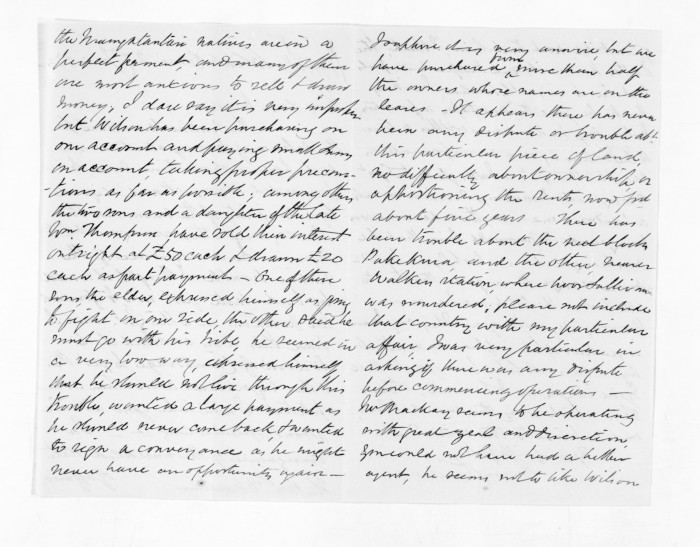 the Maungatautari natives are in a
perfect ferment and many of them
are most anxious to sell & draw
money, I dare say it is very imprudent
but Wilson has been purchasing on
our account and paying small sums
on account, taking proper precau-
-tions as far as possible; among others
the two sons and a daughter of the late
Wm Thompson have sold their interest
outright at £50 each & drawn £20
each as part payment - One of these
sons, the elder, expressed himself as going
to fight on our side, the other said he
must go with his tribe, he seemed in
a very low way, expressed himself
that he should not live through this
trouble, wanted a large payment as
he should never come back & wanted
to sign a conveyance as he might
never have an opportunity again -
Josephine it is very annoying, but we
have purchased from more than half
the owners whose names are on the
leases - It appears there has never
been any dispute or trouble abt
this particular piece of land,
no difficulty about ownership, or
apportioning the rents, now pd
about five years There has
been trouble about the next block
Pukekura and the other, nearer
Walkers station, where poor Sullivan
was murdered, please not include
that country with my particular
affair I was very particular in
asking if there was any dispute
before commencing operations -
Mr Mackay seems to be operating
with great zeal and discretion,
you could not have had a better
agent, he seems not to like Wilson